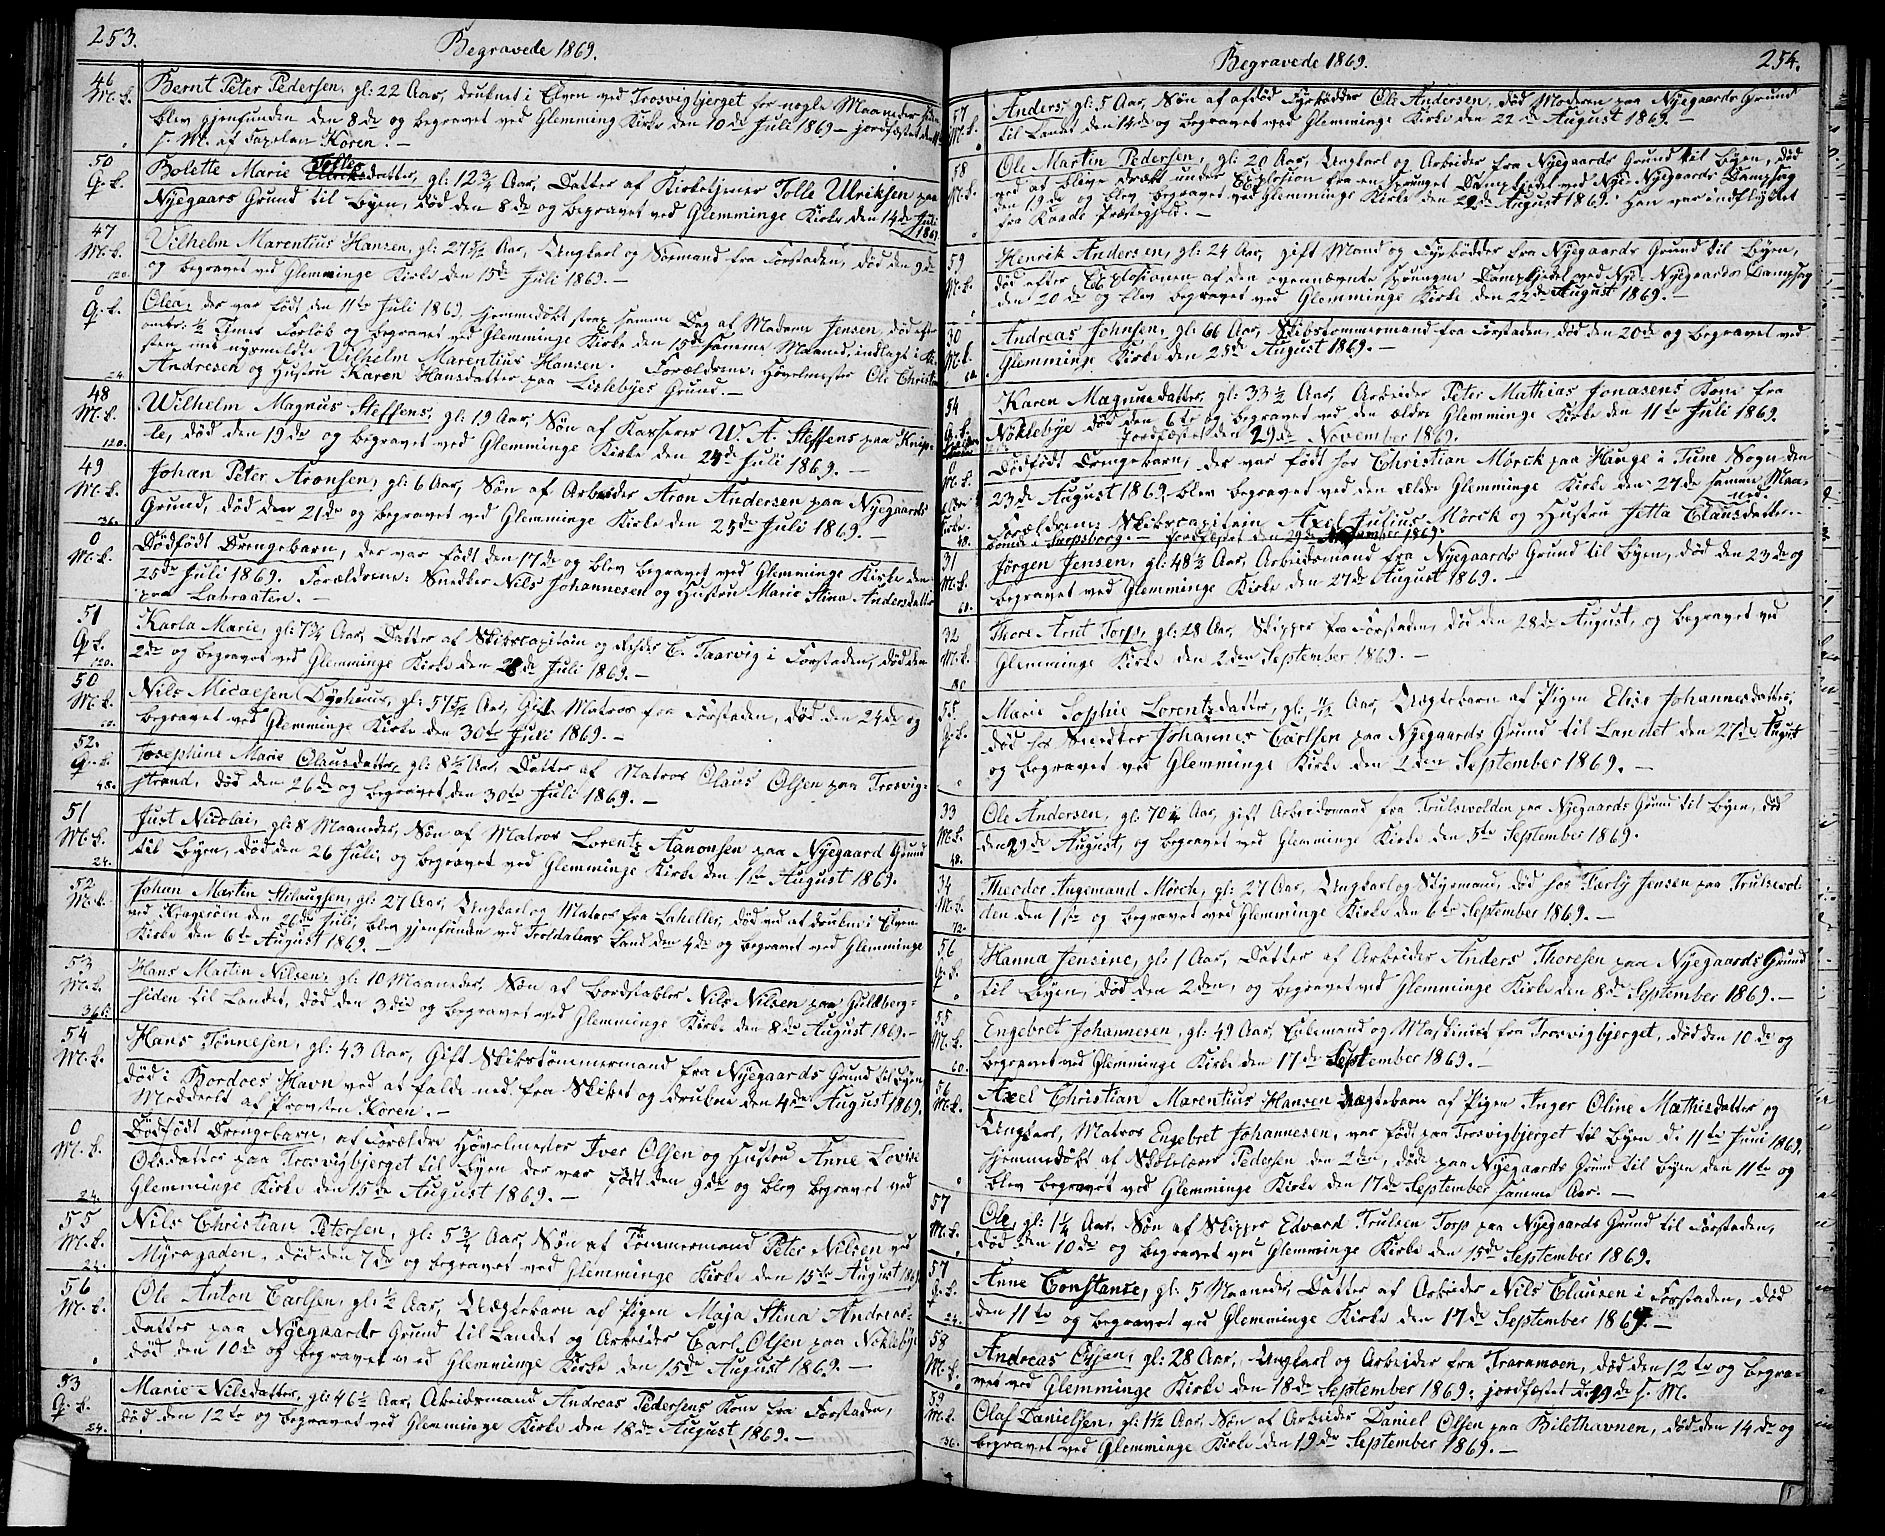 253.
Begravede 1869.
46 Bernt Peter Pedersen, gl: 22 Aar, druknet i Elven ved Trosvigbjerget for nogle Maaneder siden
M. k. blev gjenfunden den 8de og begravet ved Glemming Kirke den 10de Juli 1869 – jordfæstet den
s. M. af Capelan Koren. –
50 Bolette Marie Tollesdatter, gl: 12 3/4 Aar, Datter af Kirketjener Tolle Ulriksen paa
Q. k. Nyegaards Grund til Byen, død den 8de og begravet ved Glemminge Kirke den 14de Juli 1869
47 Vilhelm Marentius Hansen, gl: 27 5/12 Aar, Ungkarl og Sømand fra Forstaden, død den 9de
M. k. og begravet ved Glemminge Kirke den 15de Juli 1869. –
120.
0 Olea, der var født den 11te Juli 1869, hjemmedøbt strax samme Dag af Madam Jensen, død efter
Q. k. omtr: 1/2 Times Forløb og begravet ved Glemminge Kirke den 15de samme Maaned, indlagt i Ki-
sten med nysmeldte Vilhelm Marentius Hansen. Forældrene: Høvelmester Ole Christian
24. Andresen og Hustru Karen Hansdatter paa Lislebyes Grund. –
48 Wilhelm Magnus Steffens, gl: 19 Aar, Søn af Kasserer W. A. Steffens paa Knip-
M. k. le, død den 19de og begravet ved Glemminge Kirke den 24de Juli 1869. –
120.
49 Johan Peter Aronsen, gl: 6 Aar, Søn af Arbeider Aron Andersen paa Nyegaards
M. k. Grund, død den 21de og begravet ved Glemminge Kirke den 25de Juli 1869. –
36.
0 Dødfødt Drengebarn, der var født den 17de og blev begravet ved Glemminge Kirke den
M. k. 25de Juli 1869. Forældrene: Snedker Nils Johannesen og Hustru Marie Stina Andersdatter
paa Labraaten. –
51 Karla Marie, gl: 7 1/4 Aar, Datter af Skibscapitain og Rheder C. Taarvig i Forstaden, død den
Q. k. 2de og begravet ved Glemminge Kirke den 8de Juli 1869. –
120.
50 Nils Micaelsen Dyrhuus, gl: 57 5/12 Aar, Gift Matros fra Forstaden, død den 24de og
M. k. begravet ved Glemminge Kirke den 30te Juli 1869. –
52. Josephine Marie Olausdatter, gl: 8 1/2 Aar, Datter af Matros Olaus Olsen paa Trosvig-
Q. k. strand, død den 26de og begravet den 30te Juli 1869. –
48.
51 Just Nicolai, gl: 8 Maaneder, Søn af Matros Lorentz Aanonsen paa Nyegaard Grund
M. k. til Byen, død den 26 Juli, og begravet ved Glemminge Kirke den 1ste August 1869. –
24.
52 Johan Martin Stilaugsen, gl: 27 Aar, Ungkarl og Matros fra Lahelle, død ved at drukne i Elven
M. k. ved Kragerøen den 26de Juli, blev gjenfunden ved Troldalens Land den 4de og begravet ved Glemminge
Kirke den 6te August 1869. –
53 Hans Martin Nilsen, gl: 10 Maaneder, Søn af Bordstabler Nils Nilsen paa Guldberg-
M. k. siden til Landet, død den 3die og begravet ved Glemminge Kirke den 8de August 1869. –
36
54 Hans Tønnesen, gl: 43 Aar, Gift Skibstømmermand fra Nyegaards Grund til Byen,
M. k. død i Bordoes Havn ved at falde ned fra Skibet og drukne den 4de August 1869.
Meddeelt af Provsten Koren. –
0 Dødfødt Drengebarn, af Forældre Høvelmester Iver Olsen og Hustru Anne Lovise
M. k. Olsdatter paa Trosvigbjerget til Byen der var født den 9de og blev begravet ved
Glemminge Kirke den 15de August 1869. –
24.
55 Nils Christian Petersen, gl: 5 3/4 Aar, Søn af Tømmermand Peter Nilsen ved
M. k. Myragaden, død den 7de og begravet ved Glemminge Kirke den 15te August 1869
24.
56 Ole Anton Carlsen, gl: 1/2 Aar, Uægtebarn af Pigen Maja Stina Andreas-
M. k. datter paa Nyegaards Grund til Landet og Arbeider Carl Olsen paa Nøklebye
død den 10de og begravet ved Glemminge Kirke den 15de August 1869. –
53 Marie Nilsdatter, gl: 46 1/2 Aar, Abeidsmand Andreas Pedersens Kone fra Forstaden,
Q. k. død den 12te og begravet ved Glemminge Kirke den 18de August 1869. –
24.
Begravede 1869.
254.
57 Anders, gl: 5 Aar, Søn af afdød Fyrbødder Ole Andersen, død Moderen paa Nyegaards Grund
M. k. til Landet den 14de og begravet ved Glemminge Kirke den 22de August 1869. –
58 Ole Martin Pedersen, gl: 20 Aar, Ungkarl og Arbeider fra Nyegaards Grund til Byen, død
M. k. ved at blive dræbt under Explosion fra en sprunget Dampkjedel ved Nye-Nyegaards Dampsag
den 19de og blev begravet ved Glemminge Kirke den 22de August 1869. Han var indflyttet
fra Raade Præstegjeld. –
59 Henrik Andersen, gl: 24 Aar, gift Mand og Fyrbødder fra Nyegaards Grund til Byen,
M. k. død efter Explosionen af den ovennævnte sprungne Dampkjedel ved Nye-Nyegaards Dampsag
den 20de og blev begravet ved Glemminge Kirke den 22de August 1869. –
30 Andreas Johnsen, gl: 66 Aar, Skibstømmermand fra Forstaden, død den 20de og begravet ved
M. k. Glemminge Kirke den 25de August 1869. –
54 Karen Magnusdatter, gl: 33 1/2 Aar, Arbeider Peter Mathias Jonasens Kone fra
Q. k. Nøklebye død den 6te og begravet ved den ældre Glemminge Kirke den 11te Juli 1869.
Jordfæstet den 29de November 1869.
0 Dødfødt Drengebarn, der var født hos Christian Mørck paa Hauge i Tune Sogn den
M. k. 23de August 1869, blev begravet ved den ældre Glemminge Kirke den 27de samme Maa-
ned. Forældrene: Skibscapitain Axel Julius Mørck og Hustru Jetta Clausdatter
boende i Sarpsborg. – Jordfæstet den 29de November 1869.
31 Jørgen Jensen, gl: 48 1/2 Aar, Arbeidsmand fra Nyegaards Grund til Byen, død den 23de og
M. k. begravet ved Glemminge Kirke den 27de August 1869. –
60.
32 Thore Arnt Torp, gl: 28 Aar, Skipper fra Forstaden, død den 28de August, og begravet ved
M. k. Glemminge Kirke den 2den September 1869. –
55 Marie Sophie Lorentzdatter, gl: 1/2 Aar, Uægtebarn af Pigen Elise Johannesdatter,
Q. k. død hos Snedker Johannes Carlsen paa Nyegaards Grund til Landet den 27de August
og begravet ved Glemminge Kirke den 2den September 1869. –
33 Ole Andersen, gl: 70 1/4 Aar, gift Arbeidsmand fra Trulsvolden paa Nyegaards Grund til Byen, død
M. k. den 29de August, og begravet ved Glemminge Kirke den 5te September 1869.
48.
34 Theodor Ingemand Mørch, gl: 27 Aar, Ungkarl og Styrmand, død hos Tarly Jensen paa Trulsvol-
M. k. den den 1ste og begravet ved Glemminge Kirke den 6te September 1869. –
72.
56 Hanna Jensine, gl: 1 Aar, Datter af Arbeider Anders Thoresen paa Nyegaards Grund
Q. k. til Byen, død den 2den, og begravet ved Glemminge Kirke den 8de September 1869. –
55 Engebret Johannesen, gl: 49 Aar, Enkemand og Maskinist fra Trosvigbjerget, død den 10de og
M. k. begravet ved Glemminge Kirke den 17de September 1869. –
60.
56 Axel Christian Marentius Hansen Uægtebarn af Pigen Inger Oline Mathisdatter og
M. k. Ungkarl, Matros Engebret Johannesen, var født paa Trosvigbjerget til Byen d. 11te Juni 1869,
hjemmedøbt af Skolelærer Pedersen den 2den, døde paa Nyegaards Grund til Byen den 11te og
blev begravet ved Glemminge Kirke den 17de September samme Aar. –
57 Ole, gl: 1 1/4 Aar, Søn af Skipper Edvard Trulsen Torp paa Nyegaards Grund til Forstaden,
M. k. død den 10de og begravet ved Glemminge Kirke den 15de September 1869.
57 Anne Constanse, gl: 5 Maaneder, Datter af Arbeider Nils Clausen i Forstaden, død
Q. k. den 11te og begravet ved Glemminge Kirke den 17de September 1869. –
24.
58 Andreas Olsen, gl: 28 Aar, Ungkarl og Arbeider fra Traramoen, død den 12te og begra-
M. k. vet ved Glemminge Kirke den 18de September 1869; jordfæstet d. 19de s. M.
59 Olaf Danielsen, gl: 1 1/2 Aar, Søn af Arbeider Daniel Olsen paa Bilethavnen, død den 14de og
M. k. begravet ved Glemminge Kirke den 19de September 1869. –
36.